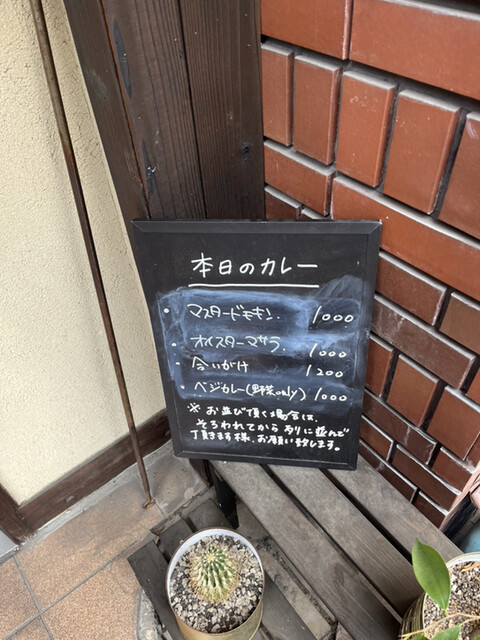 本日のカレー
・マスタードモチン. 1000
・オイスターマサラ. 1000
・合いがけ 1200
・ベジカレー(野菜only) 1000
※お並び頂く場合は、
そろわれてから列に並んで
頂きます様、お願い致します。